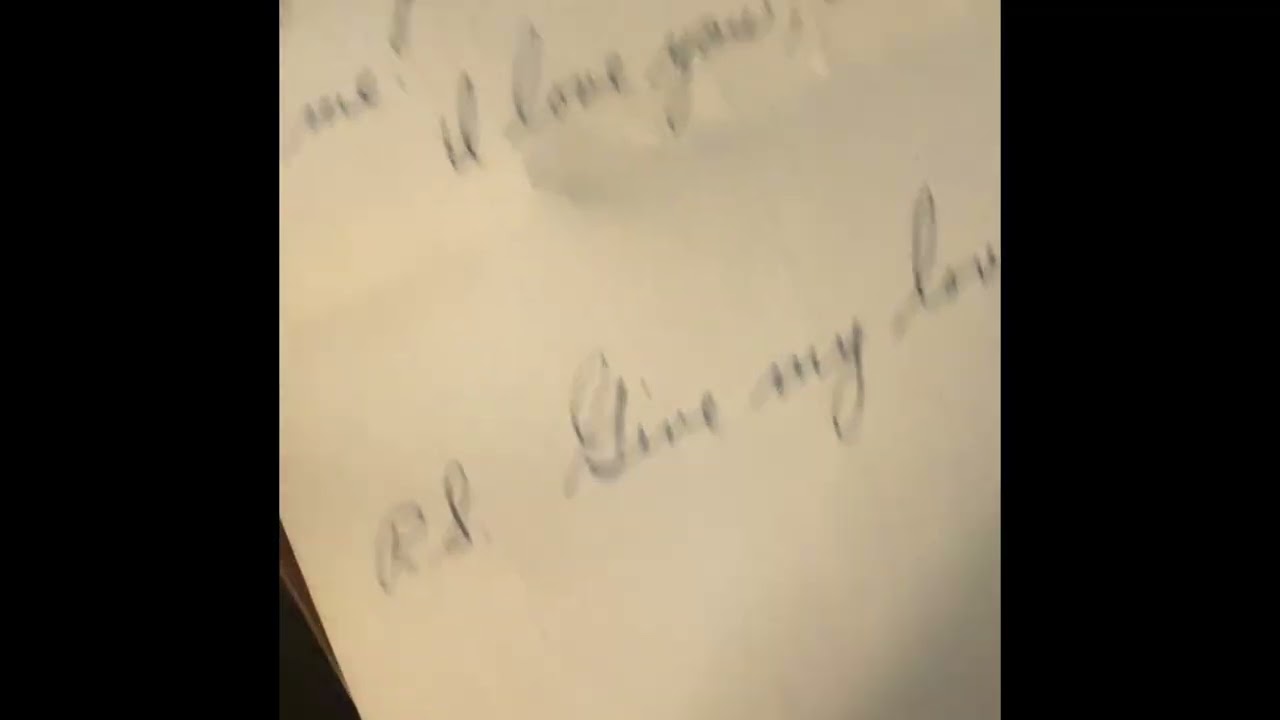 me! I love you,
P.S. Give my